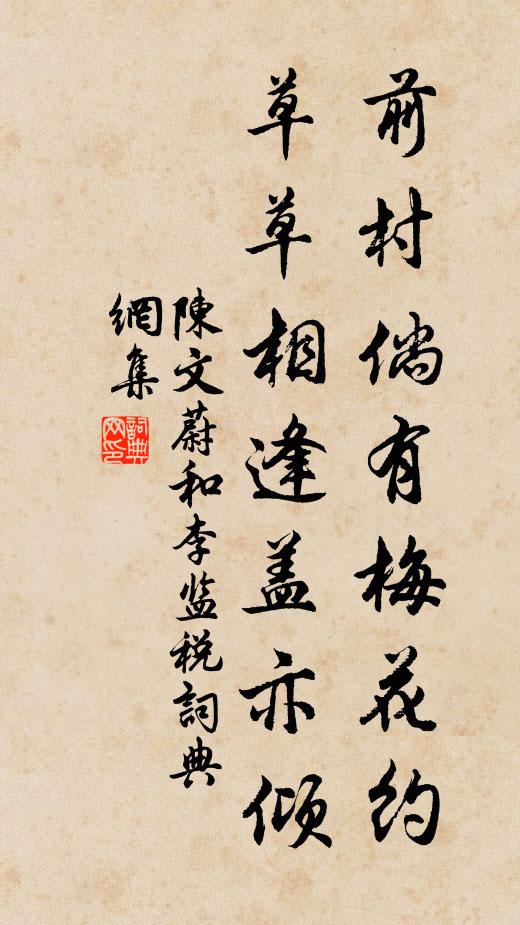 前村倘有梅花约
草草相逢盖亦倾
陳文蔚和李监税詞典
網集
詞典网印